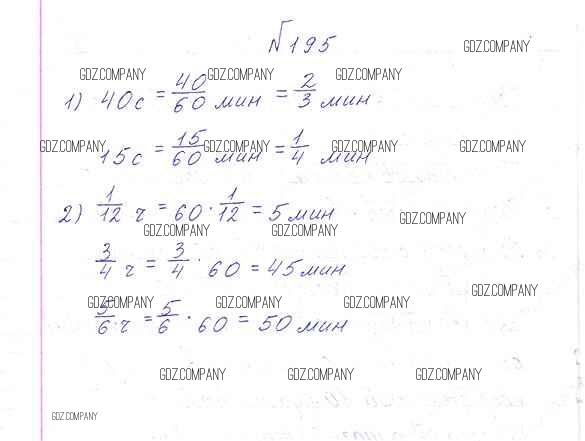 №195
GDZ.COMPANY
GDZ.COMPANY GDZ.COMPANY GDZ.COMPANY
1) 40 с = 40/60 мин = 2/3 мин
GDZ.COMPANY GDZ.COMPANY GDZ.COMPANY GDZ.COMPANY
15 с = 15/60 мин = 1/4 мин
2) 1/12 ч = 60 · 1/12 = 5 мин
GDZ.COMPANY
GDZ.COMPANY GDZ.COMPANY
3/4 ч = 3/4 · 60 = 45 мин
GDZ.COMPANY
GDZ.COMPANY GDZ.COMPANY GDZ.COMPANY
5/6 ч = 5/6 · 60 = 50 мин
GDZ.COMPANY GDZ.COMPANY GDZ.COMPANY
GDZ.COMPANY